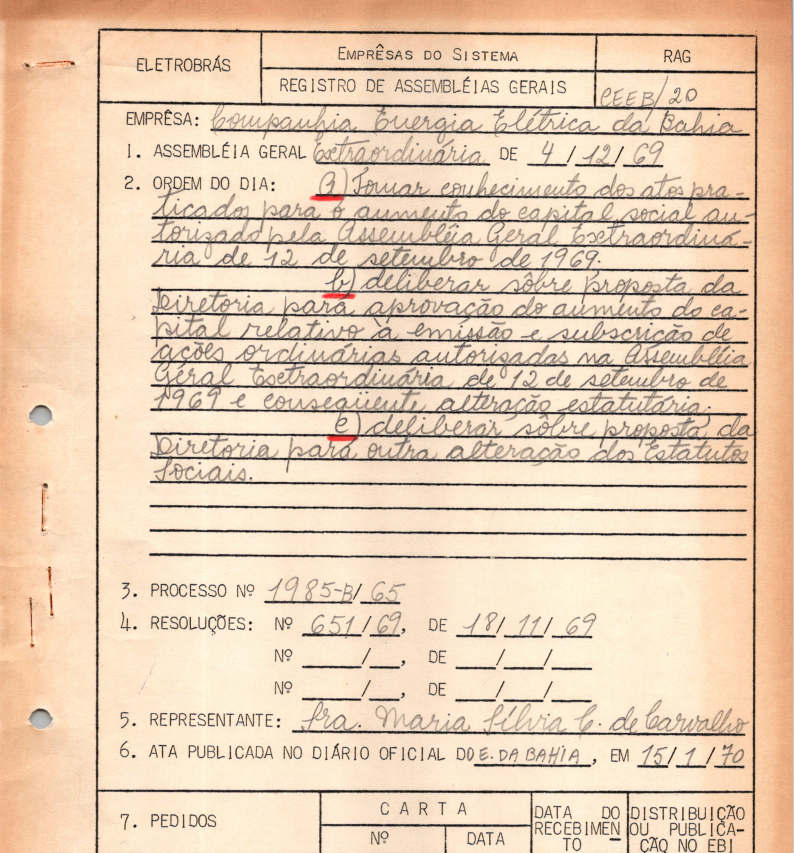 ELETROBRÁS
EMPRÊSAS DO SISTEMA
RAG
REGISTRO DE ASSEMBLÉIAS GERAIS
CEEB/20
EMPRÊSA: Companhia Energia Elétrica da Bahia
1. ASSEMBLÉIA GERAL Extraordinária DE 4/12/69
2. ORDEM DO DIA: a) Tomar conhecimento dos atos pra-
ticados para o aumento do capital social au-
torizado pela Assembléia Geral Extraordiná-
ria de 12 de setembro de 1969.
b) deliberar sôbre proposta da
Diretoria para aprovação do aumento do ca-
pital relativo à emissão e subscrição de
ações ordinárias autorizadas na Assembléia
Geral Extraordinária de 12 de setembro de
1969 e conseqüente alteração estatutária.
c) deliberar sôbre proposta da
Diretoria para outra alteração dos Estatutos
Sociais.
3. PROCESSO Nº 1985-B/65
4. RESOLUÇÕES: Nº 651/69, DE 18/11/69
Nº ___/__, DE ___/___/___
Nº ___/__, DE ___/___/___
5. REPRESENTANTE: Sra. Maria Silvia C. de Carvalho
6. ATA PUBLICADA NO DIÁRIO OFICIAL DO E. DA BAHIA, EM 15/1/70
7. PEDIDOS
CARTA
Nº
DATA
DATA DO
RECEBIMEN
TO
DISTRIBUIÇÃO
OU PUBLICA-
ÇÃO NO EBI